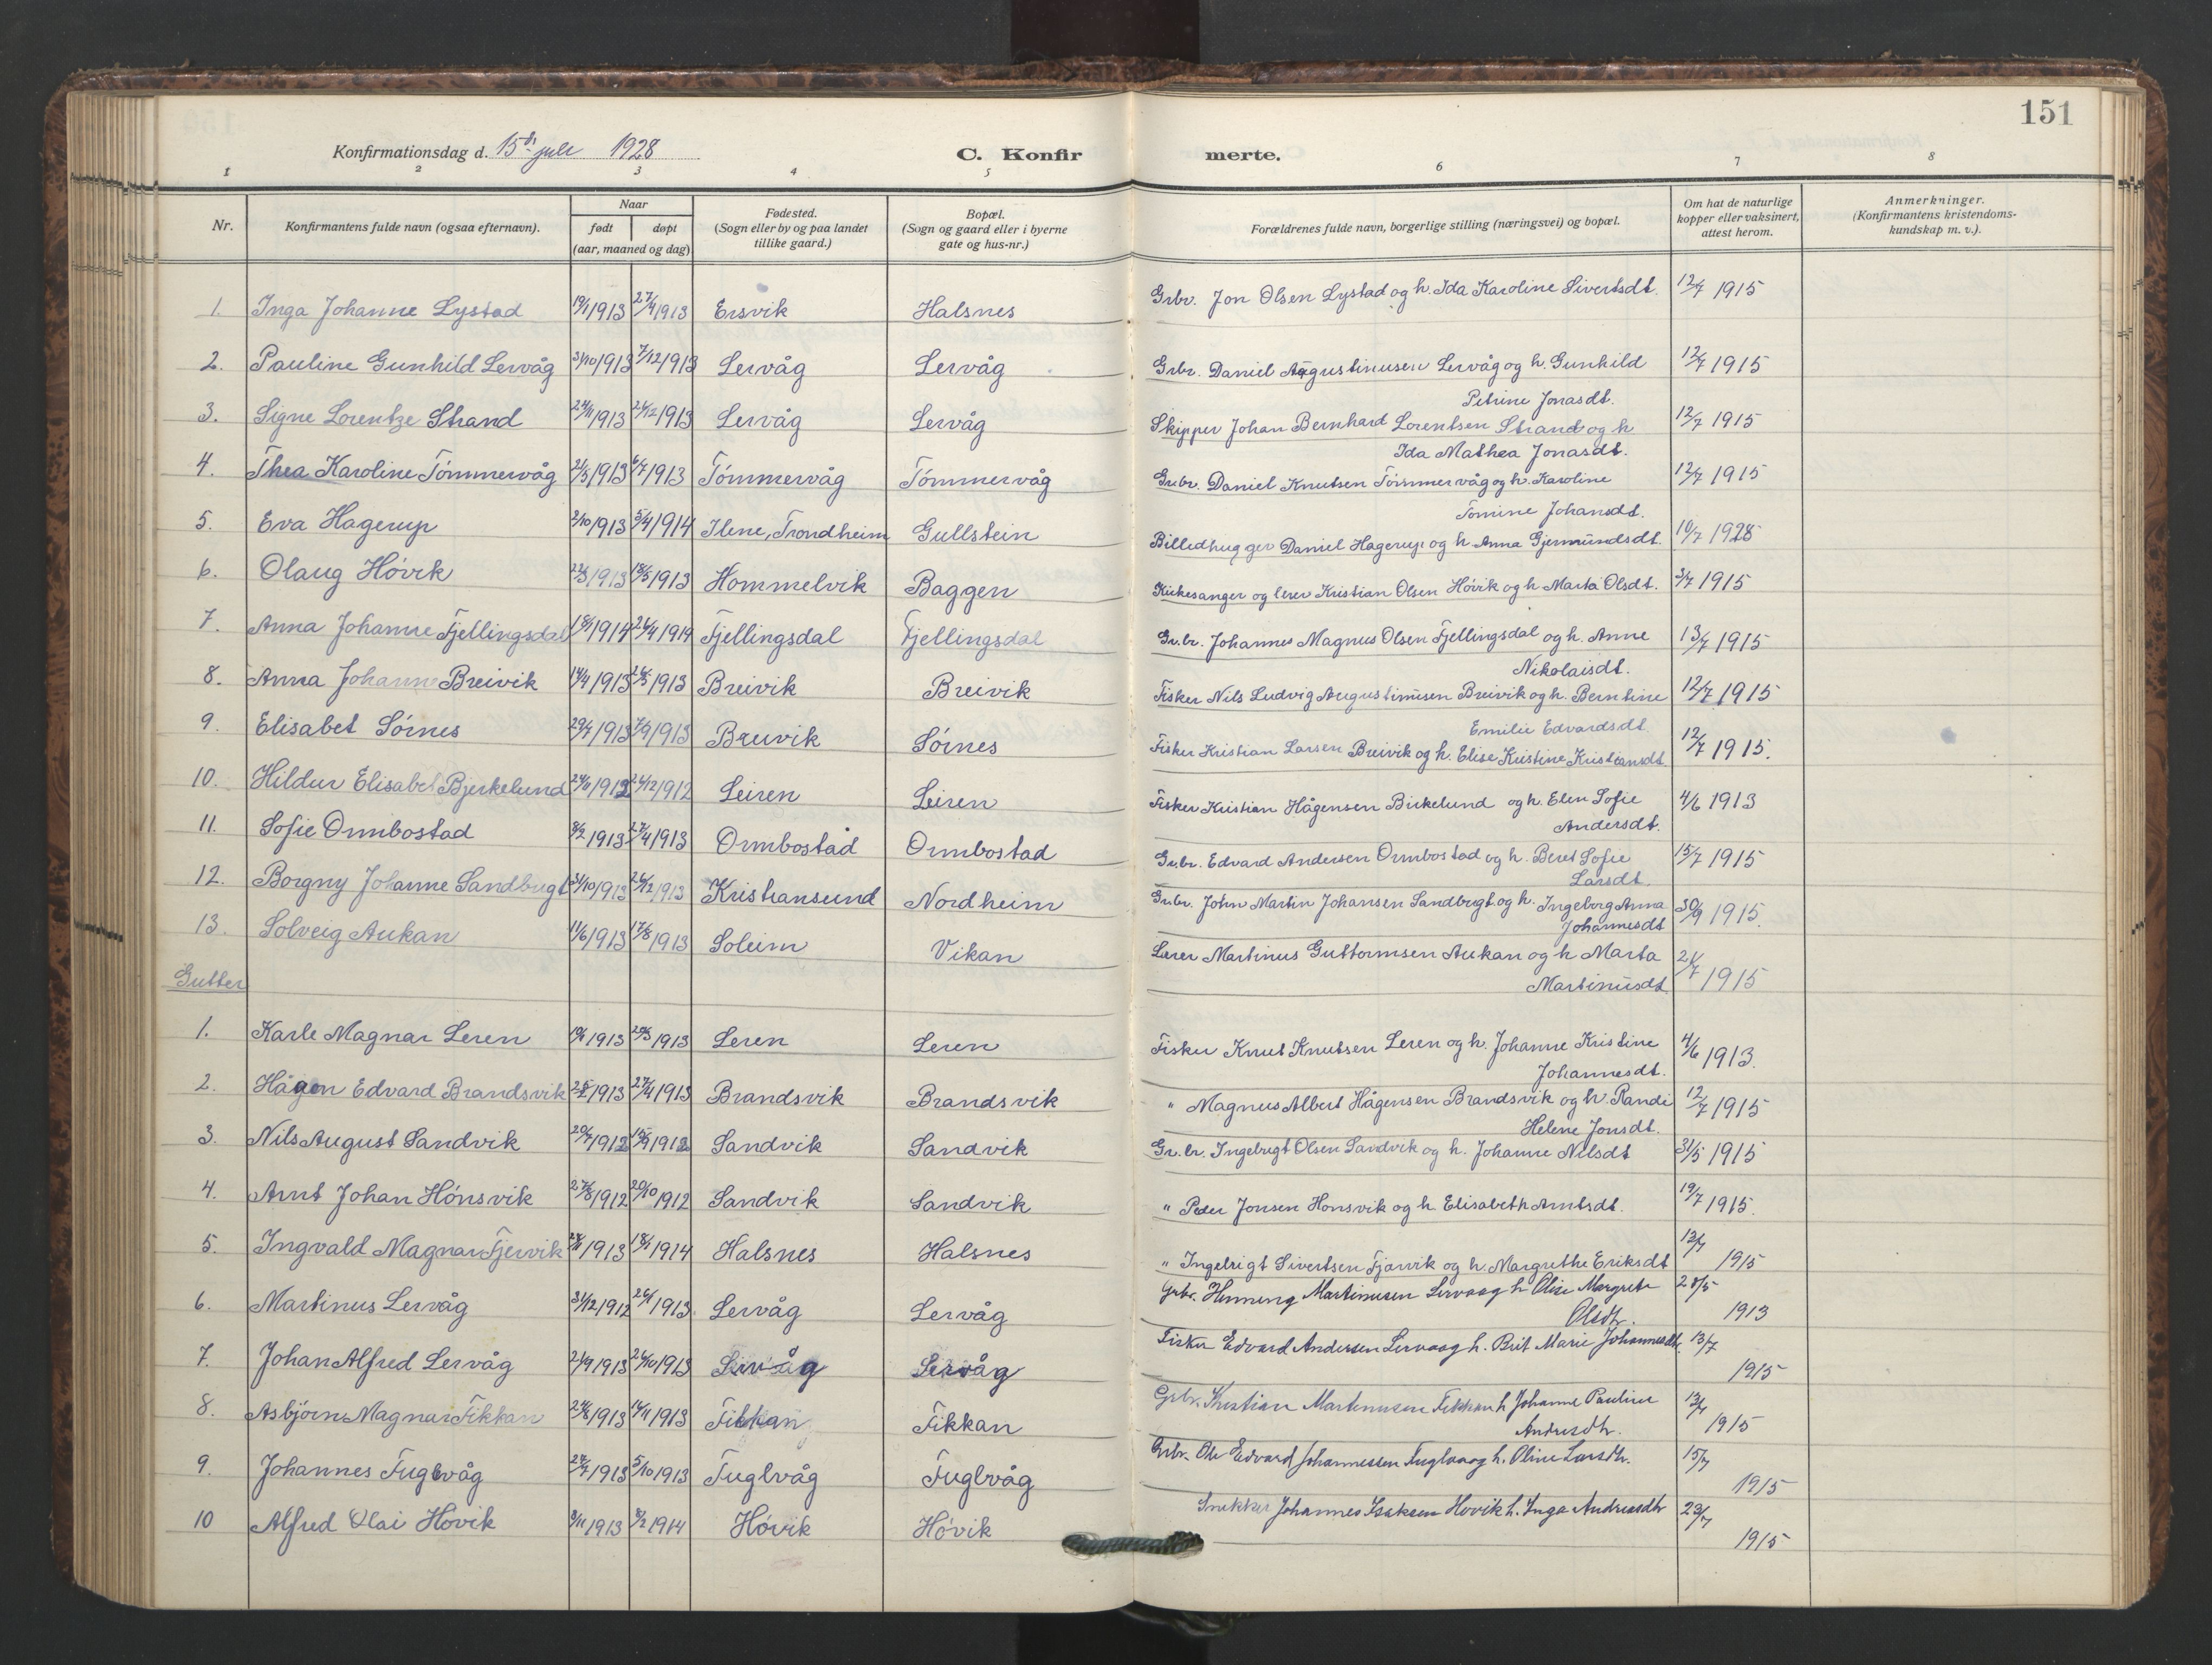 151
Konfirmationsdag d. 15de juli 1928
C. Konfirmerte.
1 2 3 4 5 6 7 8
Nr.
Konfirmantens fulde navn (ogsaa efternavn).
Naar
født døpt
(aar, maaned og dag)
Fødested.
(Sogn eller by og paa landet
tillike gaard.)
Bopæl.
(Sogn og gaard eller i byerne
gate og hus-nr.)
Forældrenes fulde navn, borgerlige stilling (næringsvei) og bopæl.
Om hat de naturlige
kopper eller vaksinert,
attest herom.
Anmerkninger.
(Konfirmantens kristendoms-
kundskap m. v.).
1. Inga Johanne Lystad 19/1 1913 27/4 1913 Ersvik Halsnes Grbr. Jon Olsen Lystad og h. Ida Karoline Sivertsdt. 12/7 1915
2. Pauline Gunhild Lervåg 31/10 1913 7/12 1913 Lervåg Lervåg Grbr. Daniel Augustinusen Lervåg og h. Gunhild 12/7 1915
Petrine Jonasdt.
3. Signe Lorentze Strand 24/11 1913 26/12 1913 Lervåg Lervåg Skipper Johan Bernhard Lorentsen Strand og h 12/7 1915
Ida Mathea Jonasdt.
4. Thea Karoline Tömmervåg 21/5 1913 6/7 1913 Tömmervåg Tömmervåg Grbr. Daniel Knutsen Tömmervåg og h. Karoline 12/7 1915
Tomine Johansdt.
5. Eva Hagerup 2/10 1913 5/4 1914 Ilene, Trondheim Gullstein Billedhugger Daniel Hagerup og h. Anna Gjermundsdt. 10/7 1928
6. Olaug Hövik 22/3 1913 18/5 1913 Hommelvik Baggen Kirkesanger og lærer Kristian Olsen Hövik og h Marta Olsdt. 3/7 1915
7. Anna Johanne Fjellingsdal 18/1 1914 26/4 1914 Fjellingsdal Fjellingsdal Gr.br. Johannes Magnus Olsen Fjellingsdal og h. Anne 13/7 1915
Nikolaisdt.
8. Anna Johanne Breivik 14/4 1913 26/5 1913 Breivik Breivik Fisker Nils Ludvig Augustinusen Breivik og h. Berntine 12/7 1915
Emilie Edvardsdt.
9. Elisabet Sörnes 29/7 1913 7/9 1913 Breivik Sörnes Fisker Kristian Larsen Breivik og h. Elise Kristine Kristiansdt 12/7 1915.
10. Hildur Elisabet Bjerkelund 24/11 1912 26/12 1912 Leiren Leiren Fisker Kristian Hågensen Birkelund og h. Elen Sofie 4/6 1913
Andersdt.
11. Sofie Ormbostad 8/2 1913 27/4 1913 Ormbostad Ormbostad Grbr. Edvard Andersen Ormbostad og h. Beret Sofie 15/7 1915
Larsdt.
12. Borgny Johanne Sandbugt 31/10 1913 26/12 1913 Kristiansund Nordheim Grbr. John Martin Johansen Sandbugt og h. Ingeborg Anna 30/9 1915.
Johannesdt
13. Solveig Aukan 11/6 1913 17/8 1913 Soleim Vikan Lærer Martinus Guttormsen Aukan og h Marta 21/7 1915
Martinusdt.
Gutter
1. Karle Magnar Leren 19/1 1913 24/3 1913 Leren Leren Fisker Knut Knutsen Leren og h. Johanne Kristine 4/6 1913.
Johannesdt.
2. Hågen Edvard Brandsvik 25/2 1913 27/4 1913 Brandsvik Brandsvik " Magnus Albert Hågensen Brandsvik og h. Randi 12/7 1915
Helene Jonsdt.
3. Nils August Sandvik 20/7 1912 15/9 1912 Sandvik Sandvik Gr.br. Ingebrigt Olsen Sandvik og h. Johanne Nilsdt 31/5 1915
4. Arnt Johan Hönsvik 27/8 1912 20/10 1912 Sandvik Sandvik " Peder Jonsen Honsvik og h Elisabeth Arntsdt. 19/7 1915.
5. Ingvald Magnar Fjervik 28/11 1913 18/1 1914 Halsnes Halsnes " Ingebrigt Sivertsen Fjærvik og h. Margrethe Eriksdt 12/7 1915
6. Martinus Lervåg 31/12 1912 26/1 1913. Lervåg Lervåg Grbr. Henning Martinusen Lervaag h Olise Margrete 28/5 1913
Olsdtr.
7. Johan Alfred Lervåg 21/9 1913 26/10 1913 Lervåg Lervåg Fisker Edvard Andersen Lervaag h. Brit Marie Johannesdtr. 13/7 1915
8. Asbjörn Magnar Fikkan 24/8 1913 16/11 1913 Fikkan Fikkan Grbr. Kristian Martinusen Fikkan h Johanne Pauline 13/7 1915
Andersdtr.
9. Johannes Fuglvåg 28/7 1913 5/10 1913 Fuglvåg Fuglvåg Grbr. Ole Edvard Johannessen Fuglvaag h. Oline Larsdtr. 15/7 1915
10 Alfred Olai Hovik 3/11 1913 8/2 1914 Hövik Hövik Snekker Johannes Isaksen Hovik h. Inga Andreasdtr 23/7 1915